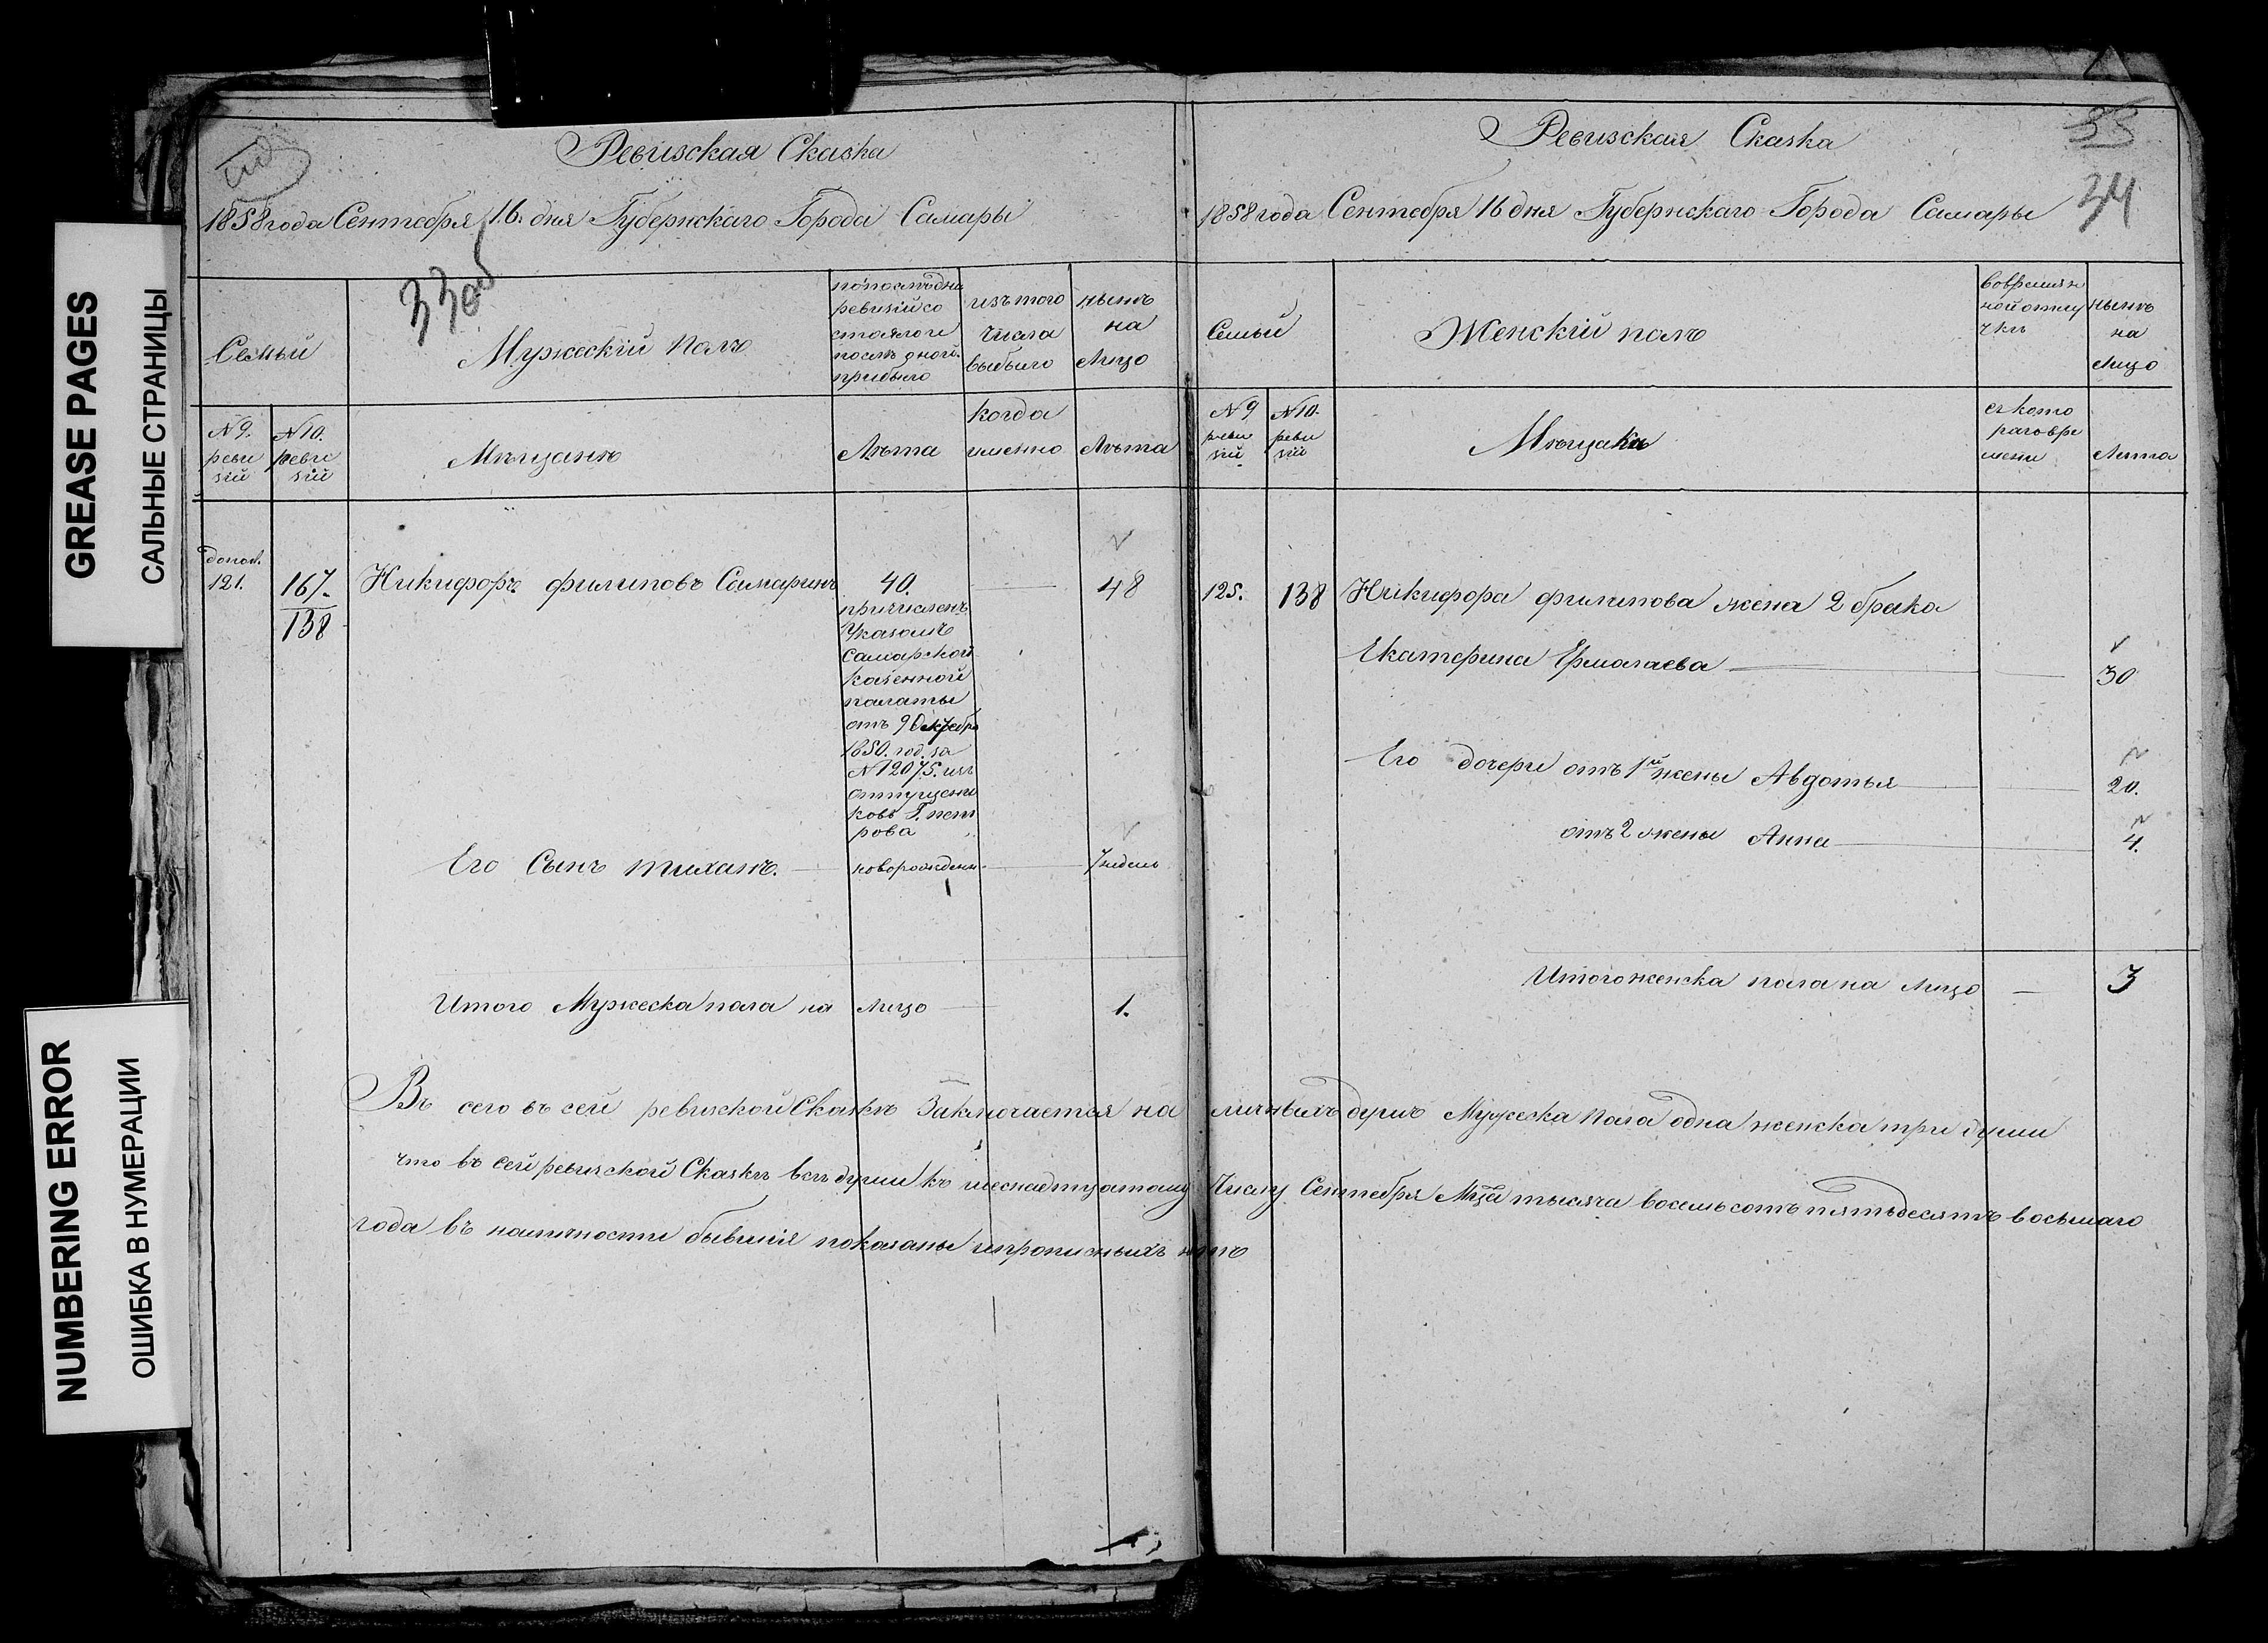 GREASE PAGES
САЛЬНЫЕ СТРАНИЦЫ
NUMBERING ERROR
ОШИБКА В НУМЕРАЦИИ
Ревизская Сказка
1858 года Сентебря 16. дня Губернскаго Города Самары
33 об
Семьи
Мужескій полъ
по последни
ревизіи со
стояло и
после дной
прибыло
изъ того
числа
выбыло
нынѣ
на
Лицо
№ 9.
реви
зіи
№ 10.
реви
зіи
Мѣщанѣ
Лѣта
когда
именно
Лѣта
допол.
121.
167.
138
Никифоръ филиповъ Самаринъ
40.
48
причисленъ
Указомъ
Самарской
казенной
палаты
отъ 9 Октебря
1850. год. за
№ 12075. изъ
отпущени
ковъ Г. пет
рова
Его Сынъ тиханъ.
новорожден.
7 недель
Итого Мужеска пола на лицо
1.
Ревизская Сказка
33
34
1858 года Сентебря 16 дня Губернскаго Города Самары
Семьи
Женскій полъ
во времян
ной отлу
чкѣ
нынѣ
на
Лицо
№ 9
реви
зіи
№ 10.
реви
зіи
Мѣщанки
съ кото
раго вре
мени
Лета
125.
138
Никифора филипова жена 2 брака
Екатерина Ермалаева
30
Его дочери отъ 1й жены Авдотья
20.
отъ 2 жены Анна
4.
Итого женска пола на лицо
3
Въ сего въ сей ревизской Сказкѣ Заключается на личныхъ душъ Мужеска пола одна женска три души
что въ сей ревизской Сказкѣ всѣ души къ шеснадтцатому Числу Сентебря Мца тысяча восемьсотъ пятьдесятъ восьмаго
года въ наличности бывшія показаны и прописныхъ нѣтъ